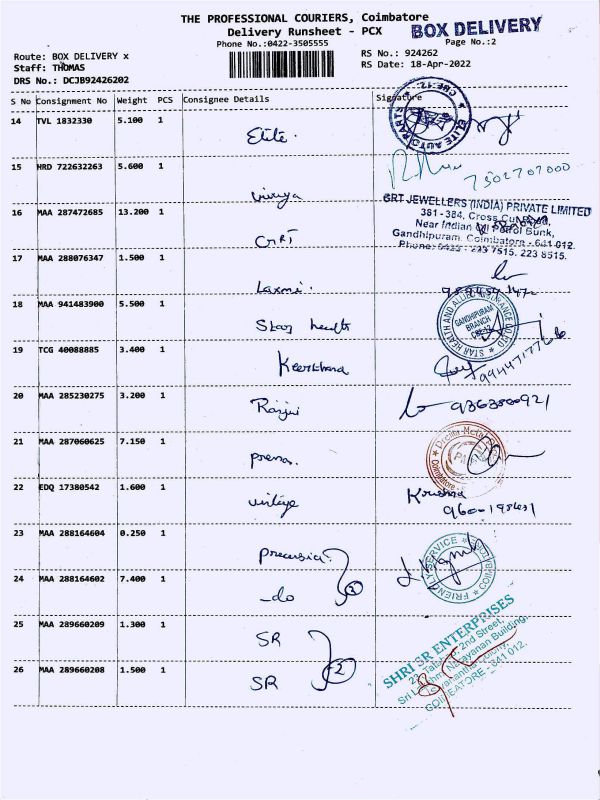 THE PROFESSIONAL COURIERS, Coimbatore
Delivery Runsheet - PCX
BOX DELIVERY
Phone No.:0422-3505555
Page No.:2
Route: BOX DELIVERY x
RS No.: 924262
Staff: THOMAS
RS Date: 18-Apr-2022
DRS No.: DCJB92426202
S No Consignment No Weight PCS Consignee Details Signature
14 TVL 1832330 5.100 1 Elite.
ELITE AUTO
15 HRD 722632263 5.600 1
7502707000
16 MAA 287472685 13.200 1 GRT
GRT JEWELLERS (INDIA) PRIVATE LIMITED
381 - 384, Cross Cut Road,
Near Indian Oil Petrol Bunk,
Gandhipuram, Coimbatore - 641 012.
Phone: 0422 - 223 7515, 223 8515.
17 MAA 288076347 1.500 1 Laxmi.
18 MAA 941483900 5.500 1 Star health
STAR HEALTH AND ALLIED INSURANCE CO LTD
GANDHIPURAM
BRANCH
19 TCG 40088885 3.400 1 Keerthana
20 MAA 285230275 3.200 1 Ranjni
21 MAA 287060625 7.150 1 prema.
22 EDQ 17380542 1.600 1
Krishna
23 MAA 288164604 0.250 1
FRIENDLY SERVICE
24 MAA 288164602 7.400 1 -do
2
25 MAA 289660209 1.300 1 SR
SHRI SR ENTERPRISES
2nd Street,
26 MAA 289660208 1.500 1 SR
2
COIMBATORE - 641 012.